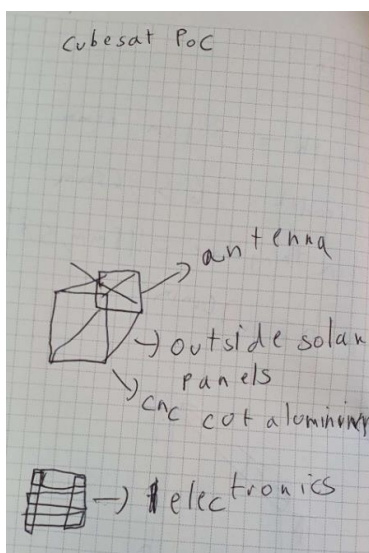 Cubesat PoC
antenna
outside solar
panels
cnc cut aluminium
electronics